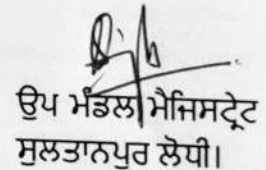 ਉਪ ਮੰਡਲ ਮੈਜਿਸਟ੍ਰੇਟ
ਸੁਲਤਾਨਪੁਰ ਲੋਧੀ।